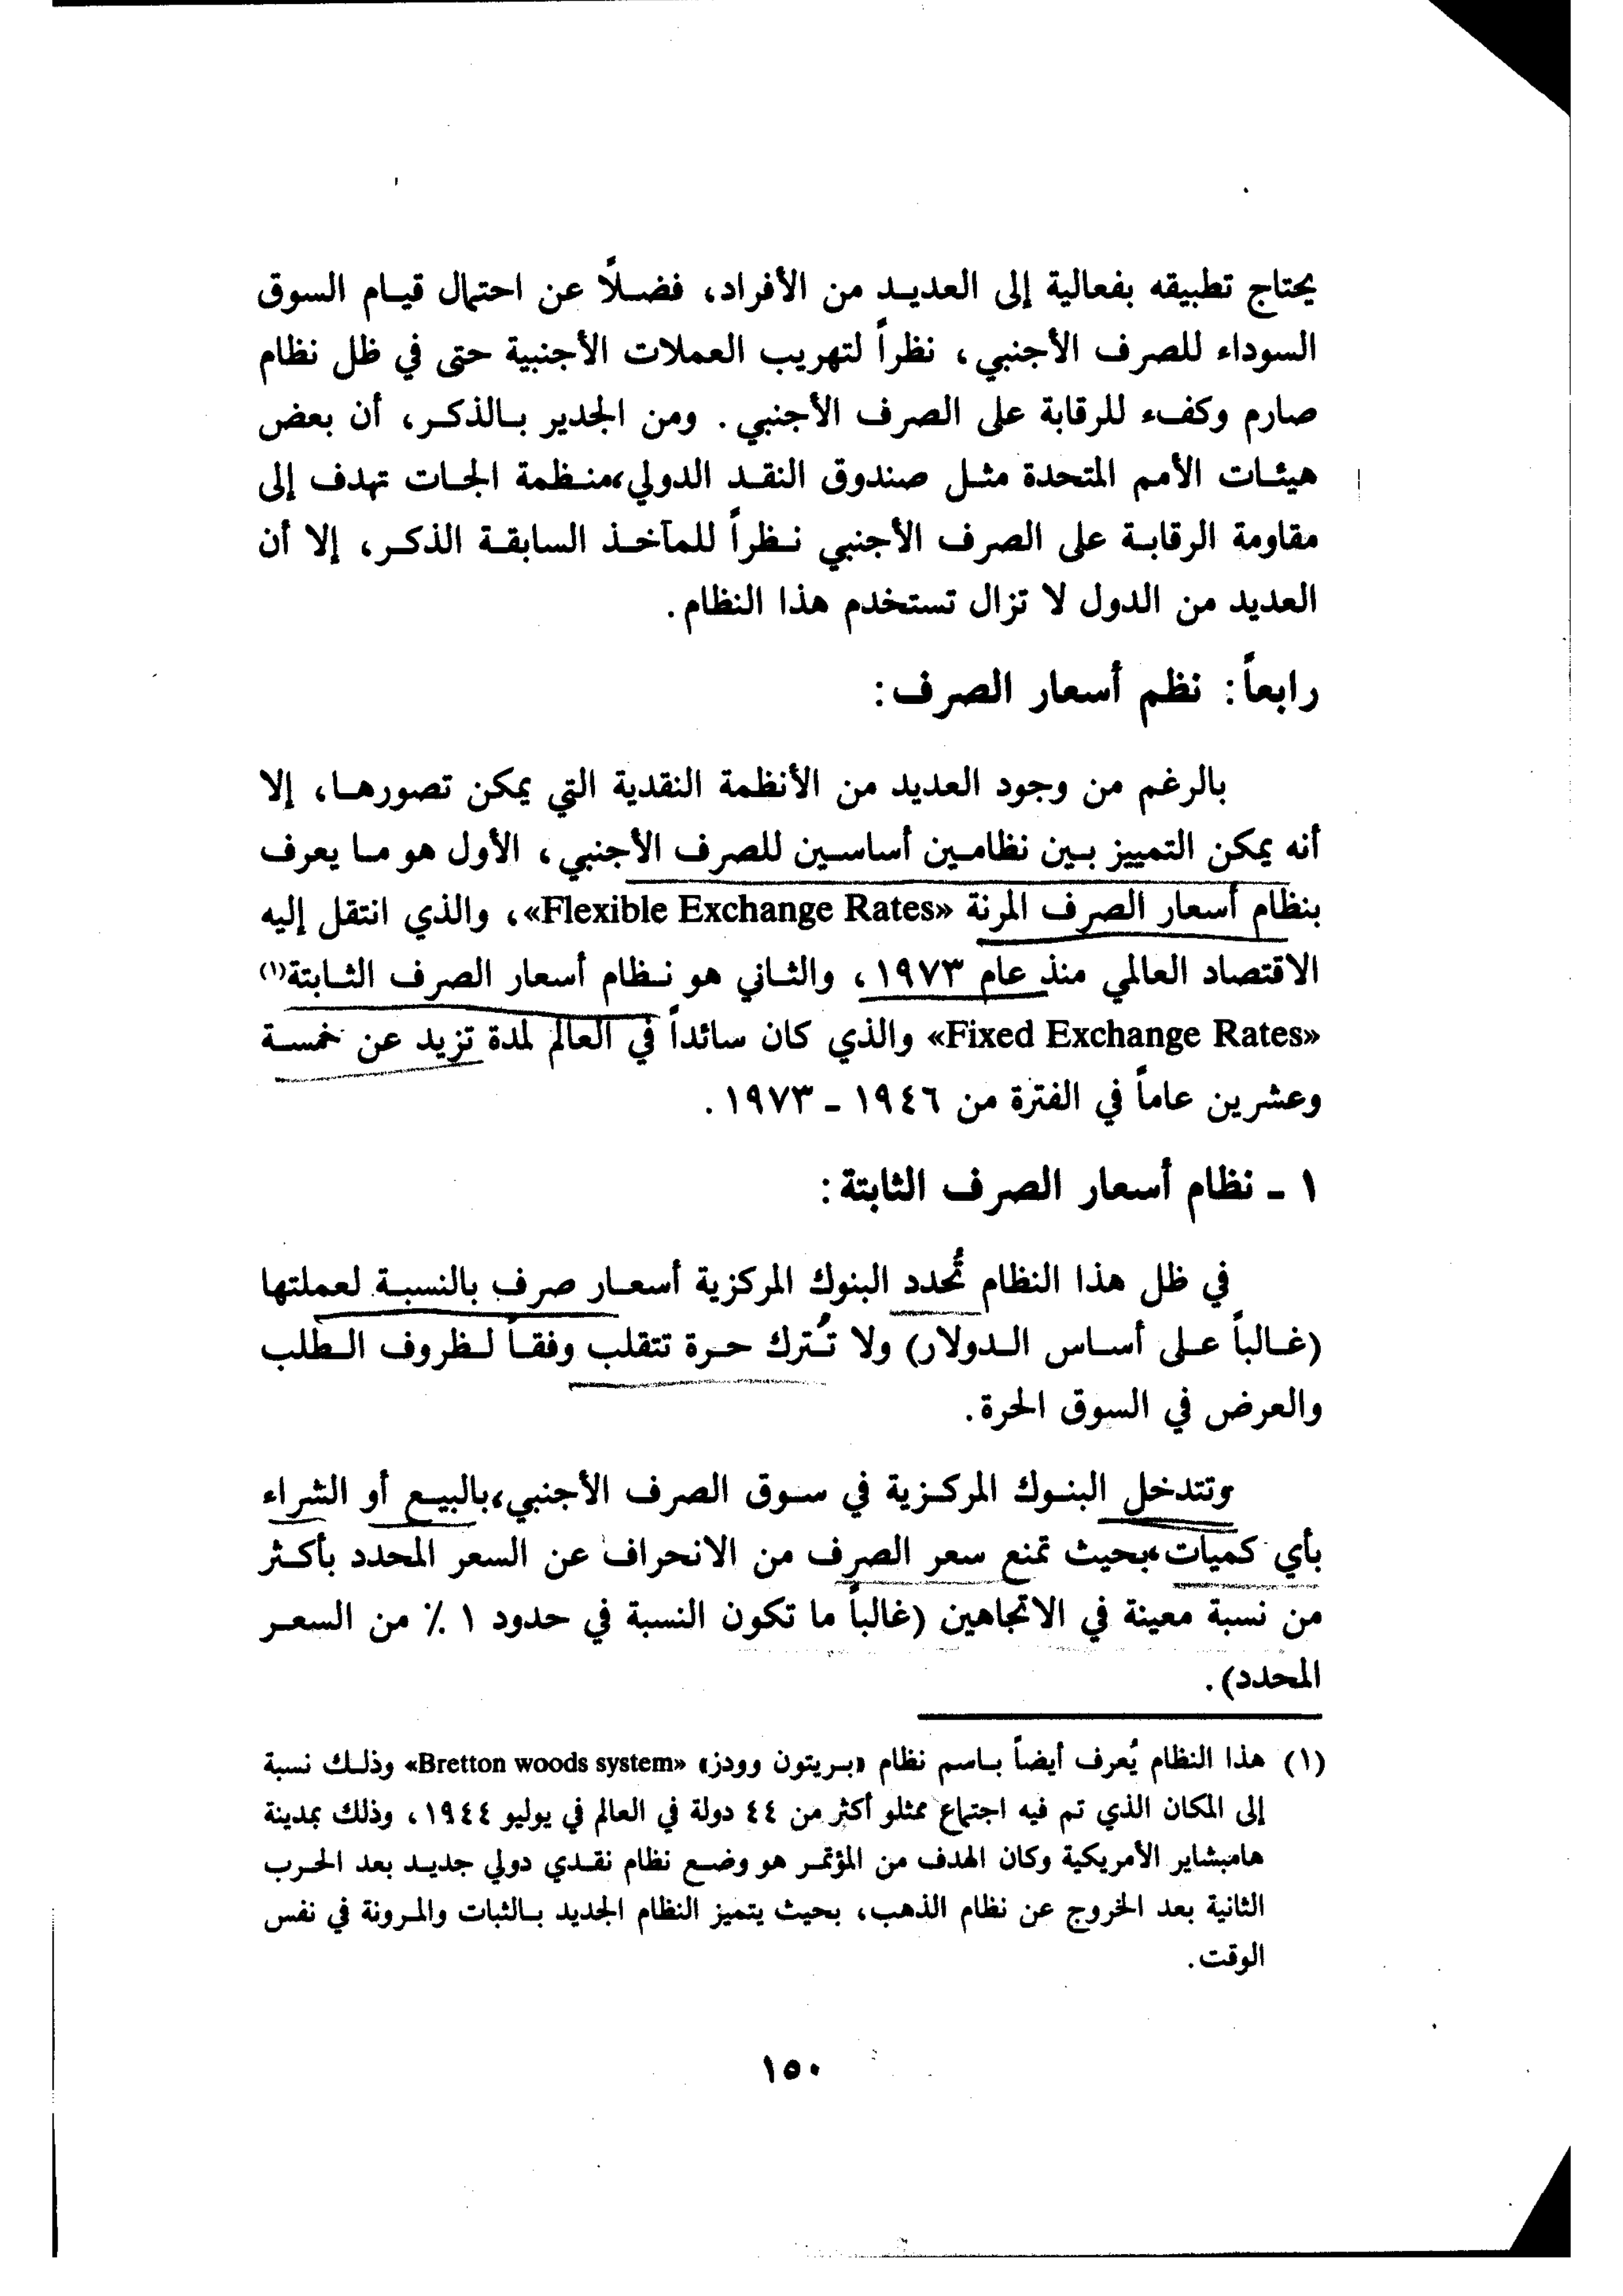 يحتاج تطبيقه بفعالية إلى العديد من الأفراد، فضلاً عن احتمال قيام السوق
السوداء للصرف الأجنبي، نظراً لتهريب العملات الأجنبية حتى في ظل نظام
صارم وكفء للرقابة على الصرف الأجنبي. ومن الجدير بالذكر، أن بعض
هيئات الأمم المتحدة مثل صندوق النقد الدولي،منظمة الجات تهدف إلى
مقاومة الرقابة على الصرف الأجنبي نظراً للمآخذ السابقة الذكر، إلا أن
العديد من الدول لا تزال تستخدم هذا النظام.
رابعاً: نظم أسعار الصرف:
بالرغم من وجود العديد من الأنظمة النقدية التي يمكن تصورها، إلا
أنه يمكن التمييز بين نظامين أساسين للصرف الأجنبي، الأول هو ما يعرف
بنظام أسعار الصرف المرنة «Flexible Exchange Rates»، والذي انتقل إليه
الاقتصاد العالمي منذ عام ١٩٧٣، والثاني هو نظام أسعار الصرف الثابتة(١)
«Fixed Exchange Rates» والذي كان سائداً في العالم لمدة تزيد عن خمسة
وعشرين عاماً في الفترة من ١٩٤٦ - ١٩٧٣.
١ - نظام أسعار الصرف الثابتة:
في ظل هذا النظام تُحدد البنوك المركزية أسعار صرف بالنسبة لعملتها
(غالباً على أساس الدولار) ولا تُترك حرة تتقلب وفقاً لظروف الطلب
والعرض في السوق الحرة.
وتتدخل البنوك المركزية في سوق الصرف الأجنبي،بالبيع أو الشراء
بأي كميات،بحيث تمنع سعر الصرف من الانحراف عن السعر المحدد بأكثر
من نسبة معينة في الاتجاهين (غالباً ما تكون النسبة في حدود ١ ٪ من السعر
المحدد).
(١) هذا النظام يُعرف أيضاً باسم نظام «بريتون وودز» «Bretton woods system» وذلك نسبة
إلى المكان الذي تم فيه اجتماع ممثلو أكثر من ٤٤ دولة في العالم في يوليو ١٩٤٤، وذلك بمدينة
هامبشاير الأمريكية وكان الهدف من المؤتمر هو وضع نظام نقدي دولي جديد بعد الحرب
الثانية بعد الخروج عن نظام الذهب، بحيث يتميز النظام الجديد بالثبات والمرونة في نفس
الوقت.
١٥٠